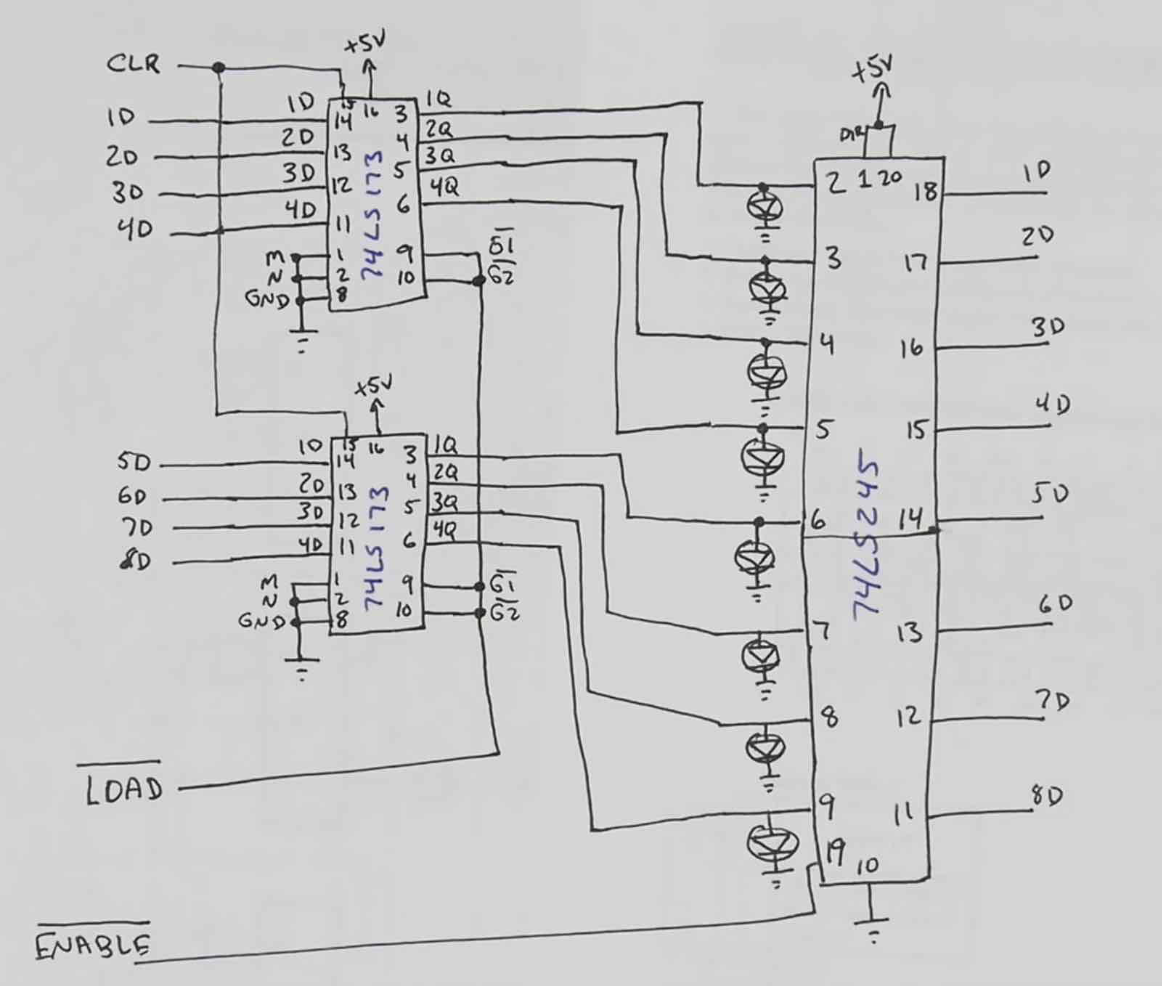 CLR
+5V
1D 1D 15 16 3 1Q
14
2D 2D 13 4 2Q
3D 3D 12 5 3Q
4D 4D 11 6 4Q
74LS173
M 1 9 G1
N 2 10 G2
GND 8
+5V
5D 1D 15 16 3 1Q
14
6D 2D 13 4 2Q
7D 3D 12 5 3Q
8D 4D 11 6 4Q
74LS173
M 1 9 G1
N 2 10 G2
GND 8
LOAD
ENABLE
+5V
DIR
2 1 20 18 1D
3 17 2D
4 16 3D
5 15 4D
74LS245
6 14 5D
7 13 6D
8 12 7D
9 11 8D
19 10